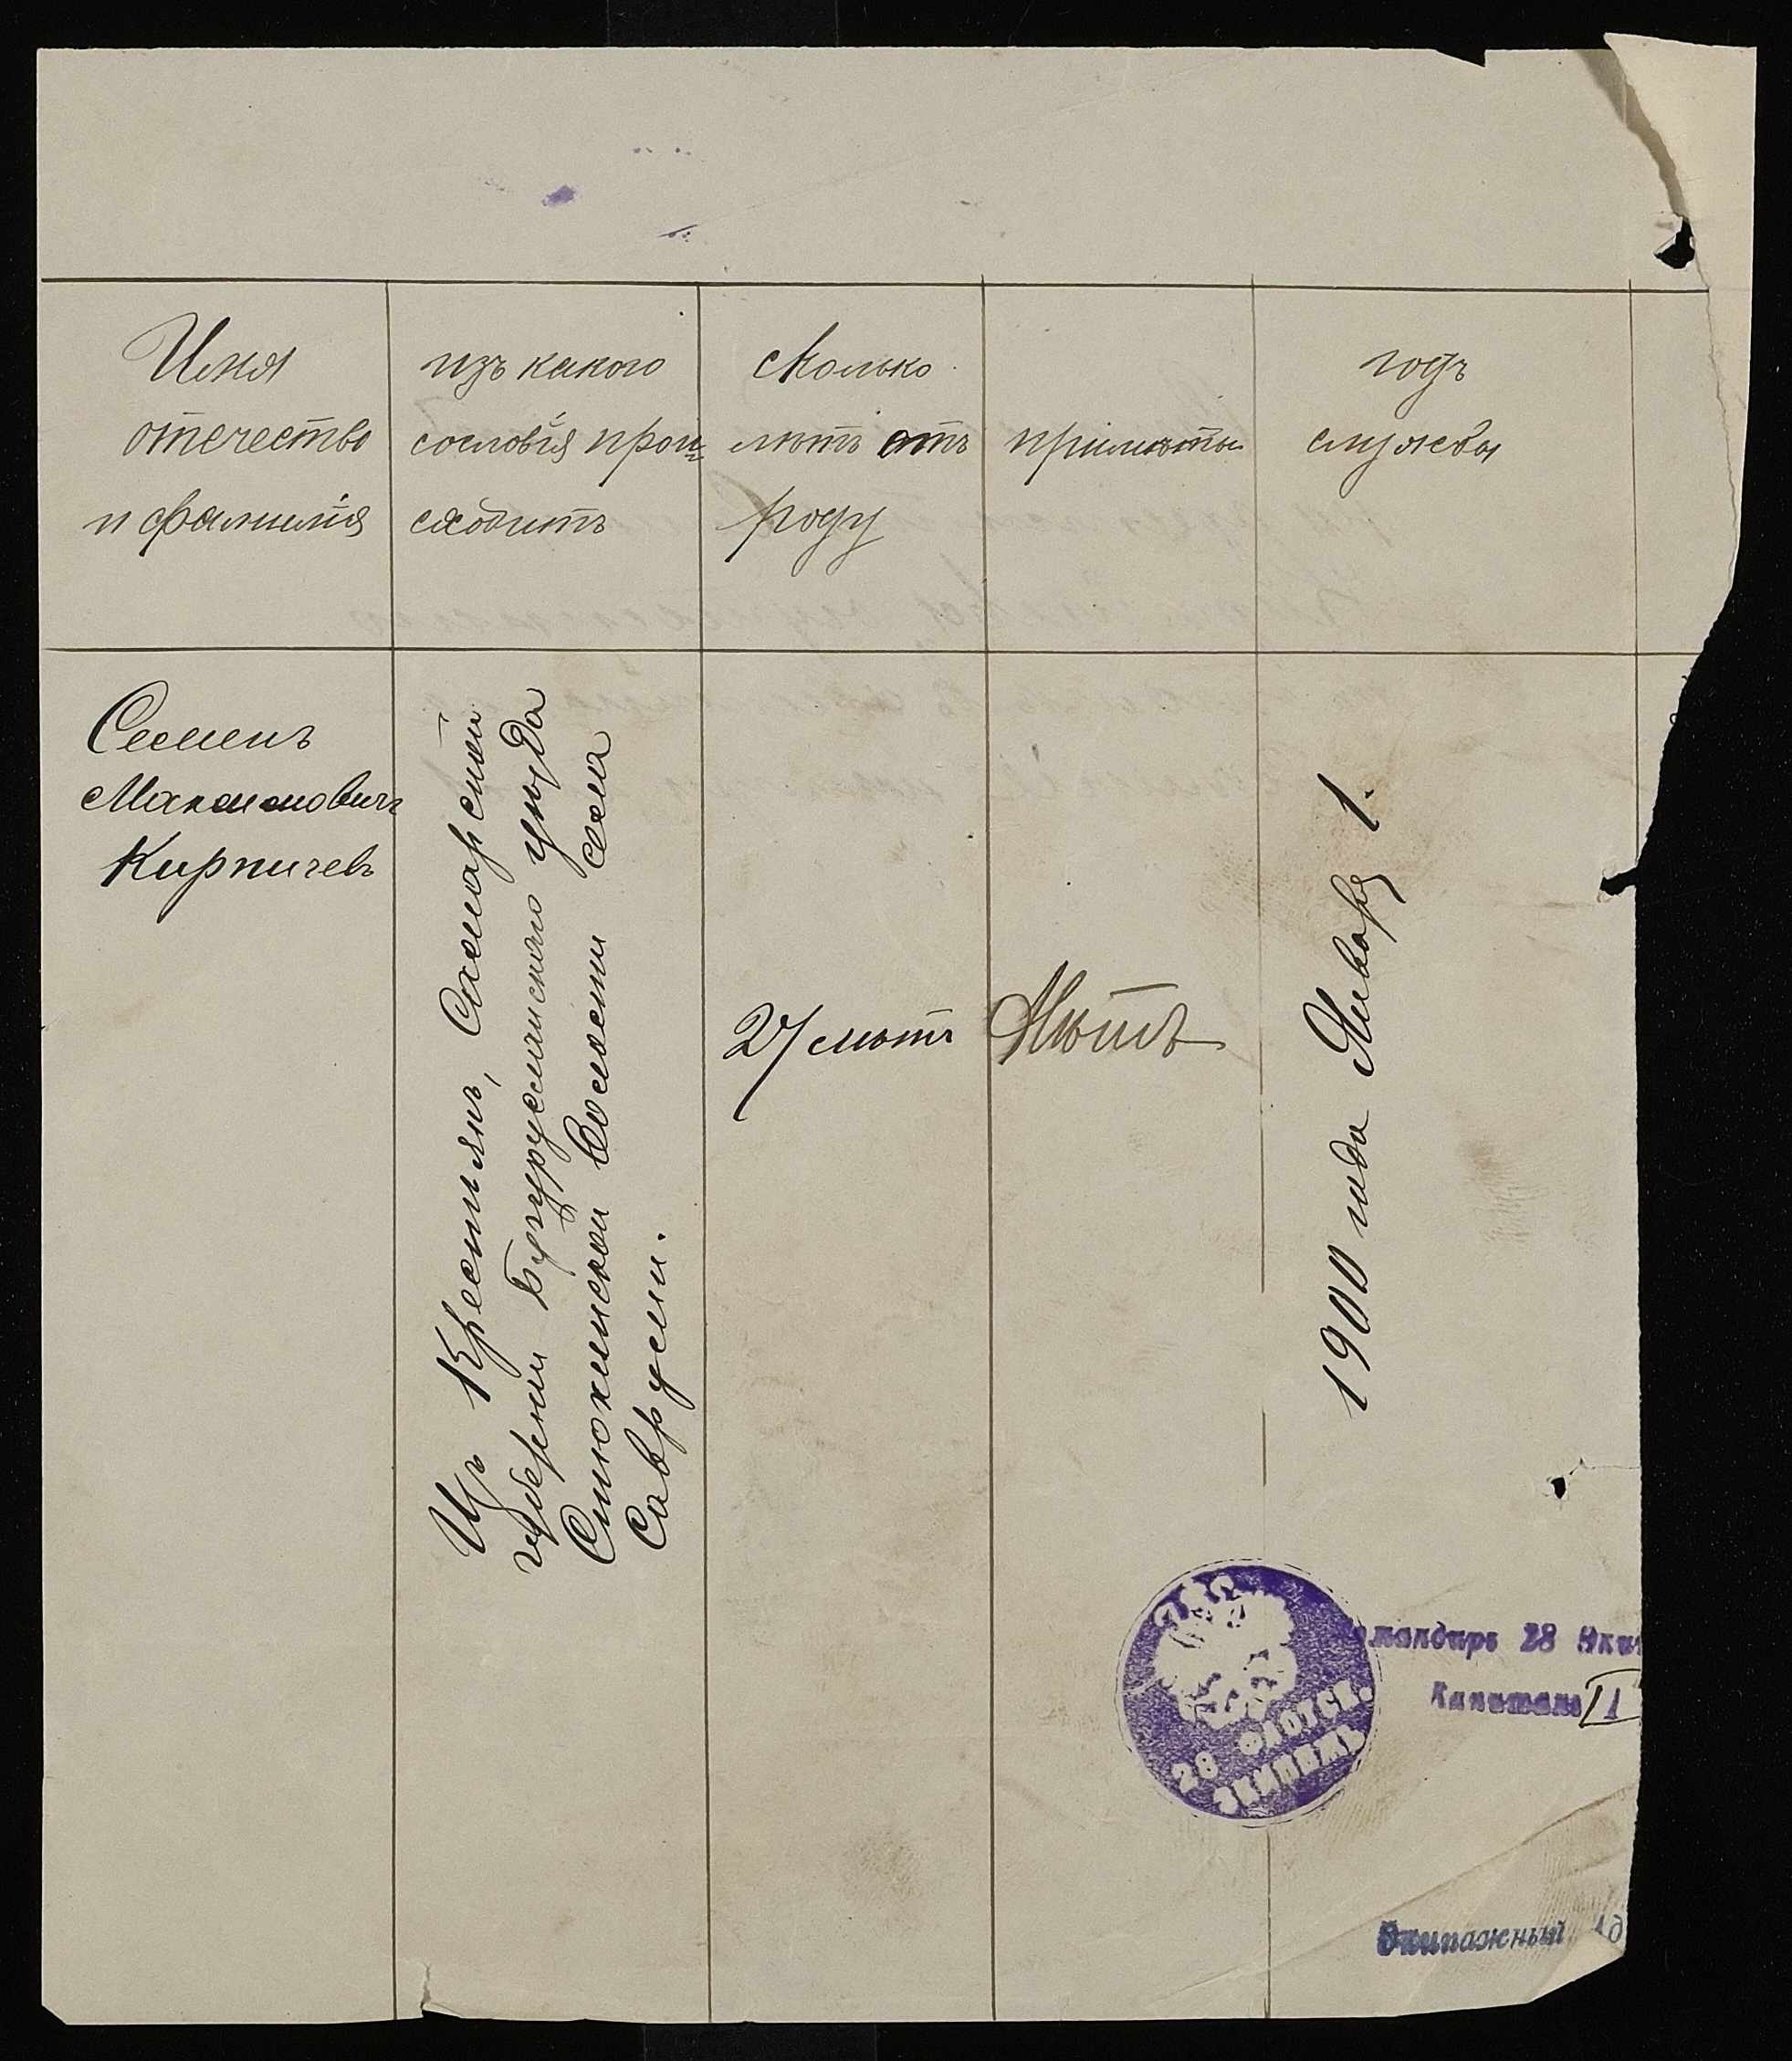 Имя
отечество
и фамилія
изъ какого
сословія прои=
сходитъ
сколько
лѣтъ отъ
роду
примѣты
годъ
службы
Семенъ
Максимовичъ
Кирпичевъ
Изъ Крестьянъ, Самарской
губерніи Бугурусланскаго уѣзда
волости села
Савруши.
27 лѣтъ
Нѣтъ
1900 года Января 1.
28 ФЛОТСК.
ЭКИПАЖЪ
омандиръ 28 Экип
Капитанъ I
Экипажный Ад